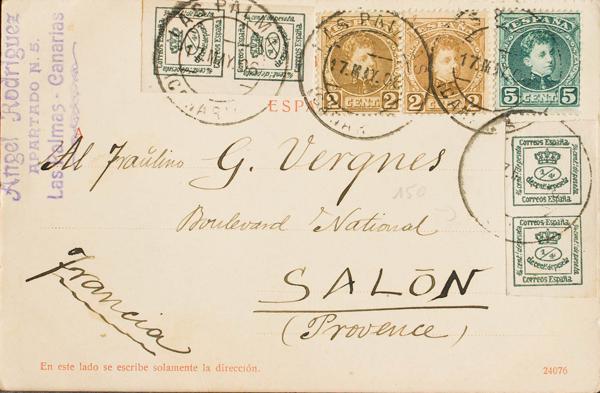 Angel Rodriguez
APARTADO N. 5.
Las Palmas - Canarias
¼ cent. de peseta
¼ cent. de peseta
LAS PAL
ESPAÑA
2 CENT 2
ESPAÑA
2 CENT 2
ESPAÑA
5 CENT 5
17.MAY.
CANAR
ESPA
A
Al Fräulino G. Vergnes
150
Boulevard National
SALÓN
(Provence)
Francia
Correos España
¼
de cent. de peseta
Correos España
Correos España
¼
de cent. de peseta
Correos España
En este lado se escribe solamente la dirección.
24076